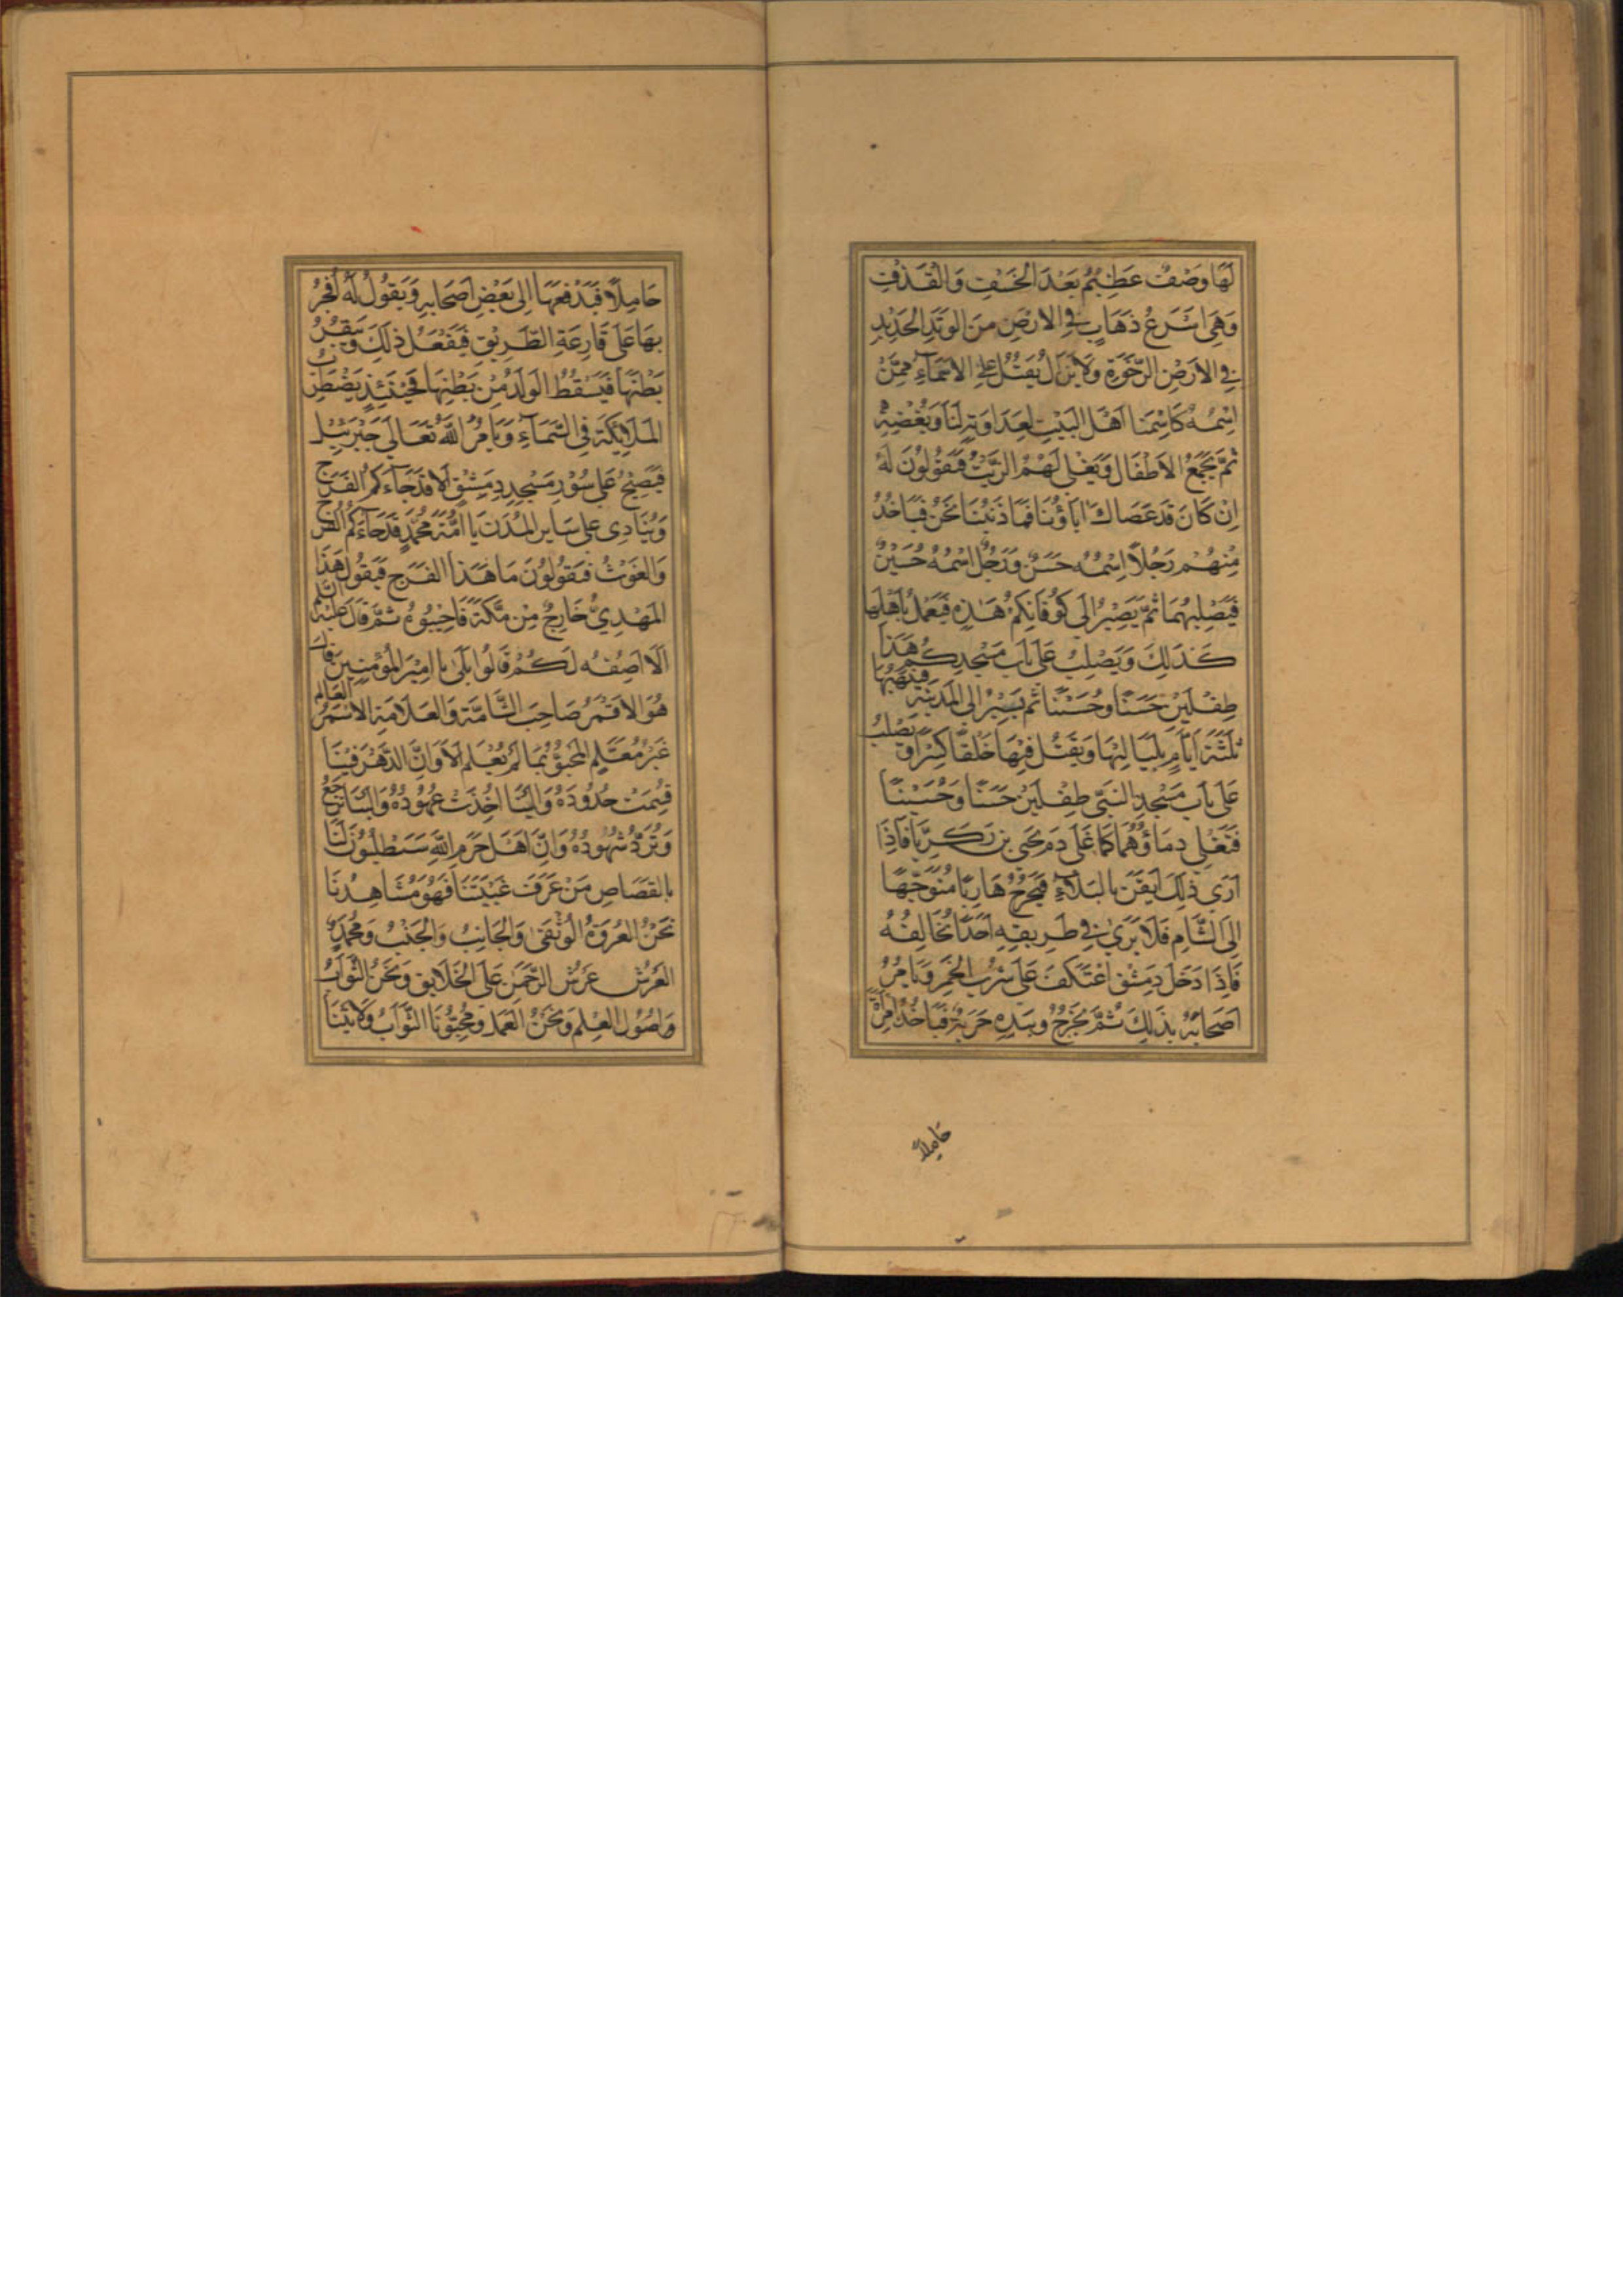 لَهَا وَصْفٌ عَظِيْمٌ بَعْدَ الْخَسْفِ وَالْقَذْفِ
وَهِيَ اَسْرَعُ ذَهَابٍ فِي الاَرْضِ مِنَ الْوَتَدِ الْحَدِيْدِ
فِي الاَرْضِ الرَّخْوَةِ وَلَا يَزَالُ يَقْتُلُ عَلَى الاَسْمَآءِ مِمَّنْ
اِسْمُهُ كَاسْمِنَا اَهْلَ الْبَيْتِ لِعَدَاوَتِهِ لَنَا وَبُغْضِهِ
ثُمَّ يَجْمَعُ الاَطْفَالَ وَيَغْلِى لَهُمُ الزَّيْتُ فَيَقُولُونَ لَهُ
اِنْ كَانَ قَدْ عَصَاكَ اٰبَاؤُنَا فَمَا ذَنْبُنَا نَحْنُ فَيَاخُذُ
مِنْهُمْ رَجُلاً اِسْمُهُ حَسَنٌ وَرَجُلٌ اسْمُهُ حُسَيْنٌ
فَيَصْلِبُهُمَا ثُمَّ يَصِيْرُ اِلَى كُوْفَانِكُمْ هٰذِهِ فَيَعْمَلُ بِاَهْلِهَا
كَذَلِكَ وَيَصْلِبُ عَلَى بَابِ مَسْجِدِكُمْ هَذَا
طِفْلَيْنِ حَسَنًا وَحُسَيْنًا ثُمَّ يَسِيْرُ اِلَى الْمَدِيْنَةِ فَيَنْهَبُهَا
ثَلٰثَةَ اَيَّامٍ بِلَيَالِيْهَا وَيَقْتُلُ فِيْهَا خَلْقًا كَثِيْرًا وَيَصْلِبُ
عَلَى بَابِ مَسْجِدِ النَّبِيِّ طِفْلَيْنِ حَسَنًا وَحُسَيْنًا
فَتَغْلِي دِمَاؤُهُمَا كَمَا غَلَى دَمُ يَحْيَى بْنِ زَكَرِيَّا فَاِذَا
اَرَى ذٰلِكَ اَيْقَنَ بِالْبَلَاءِ فَيَخْرُجُ هَارِبًا مُتَوَجِّهًا
اِلَى الشَّامِ فَلَا يَرَى فِي طَرِيْقِهِ اَحَدًا يُخَالِفُهُ
فَاِذَا دَخَلَ دِمَشْقَ اعْتَكَفَ عَلَى شُرْبِ الْخَمْرِ وَيَامُرُ
اَصْحَابَهُ بِذَلِكَ ثُمَّ يَخْرُجُ وَبِيَدِهِ حَرْبَةٌ فَيَاخُذُ امْرَاَةً
حَامِلاً
حَامِلاً فَيَدْفَعُهَا اِلَى بَعْضِ اَصْحَابِهِ وَيَقُولُ لَهُ اُفْجُرْ
بِهَا عَلَى قَارِعَةِ الطَّرِيْقِ فَيَفْعَلُ ذٰلِكَ وَيَبْقُرُ
بَطْنَهَا فَيَسْقُطُ الْوَلَدُ مِنْ بَطْنِهَا فَحِيْنَئِذٍ يَضْطَرِبُ
الْمَلَائِكَةُ فِي السَّمَآءِ وَيَامُرُ اللهُ تَعَالَى جَبْرَئِيْلَ
فَيَصِيْحُ عَلَى سُوْرِ مَسْجِدِ دِمَشْقَ اَلَا قَدْ جَآءَكُمُ الْفَرَجُ
وَيُنَادِى عَلَى سَائِرِ الْمُدُنِ يَا اُمَّةَ مُحَمَّدٍ قَدْ جَآءَكُمُ الْفَرَجُ
وَالْغَوْثُ فَيَقُولُونَ مَا هَذَا الْفَرَجُ فَيَقُولُ هَذَا
الْمَهْدِيُّ خَارِجٌ مِنْ مَكَّةَ فَاَجِيْبُوهُ ثُمَّ قَالَ عَلَيْهِ السَّلَامُ
اَلَا اَصِفُهُ لَكُمْ قَالُوا بَلَى يَا اَمِيْرَ الْمُؤْمِنِيْنَ قَالَ
هُوَ الاَقْمَرُ صَاحِبُ الشَّامَةِ وَالْعَلَامَةِ الاَسْمَرُ الْعَالِمُ
غَيْرُ مُعَلَّمٍ الْمَحْبُوُّ بِمَا لَمْ يُعْلَمْ اَلَا وَاِنَّ الدَّهْرَ فِيْنَا
قُسِمَتْ حُدُودُهُ وَاِلَيْنَا اُخِذَتْ عُهُودُهُ وَاِلَيْنَا تَرْجِعُ
وَتُرَدُّ شُهُودُهُ وَاِنَّ اَهْلَ حَرَمِ اللهِ سَيَطْلُبُوْنَ لَنَا
بِالْقِصَاصِ مَنْ عَرَفَ غَيْبَتَنَا فَهُوَ مُشَاهِدُنَا
نَحْنُ الْعُرْوَةُ الْوُثْقَى وَالْجَانِبُ وَالْجَنْبُ وَمُحَمَّدٌ
الْعَرْشُ عَرْشُ الرَّحْمٰنِ عَلَى الْخَلَائِقِ وَنَحْنُ الثَّوَابُ
وَاُصُوْلُ الْعِلْمِ وَنَحْنُ الْعَمَدُ وَمُحِبُّوْنَا الثَّوَابُ وَلَايَتُنَا